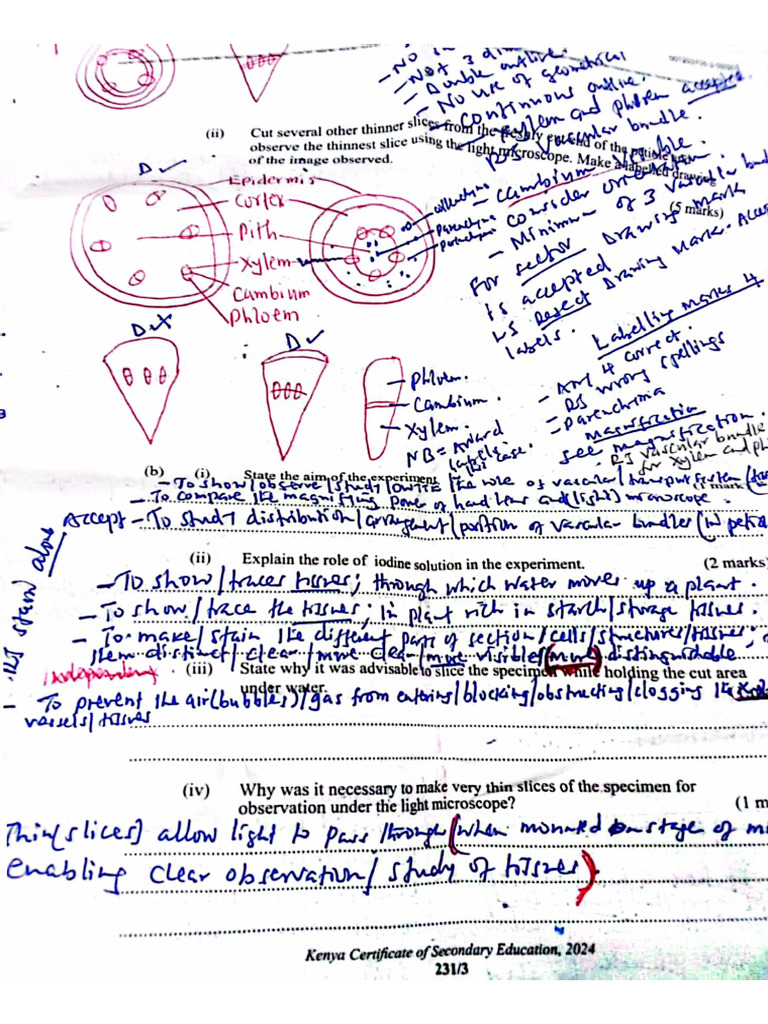 - Not 3 dim
- Double outline.
- No use of geometrical
- Continuous outline.
- Xylem and phloem accepted
(ii) Cut several other thinner slices from the freshly cut end of the petiole
observe the thinnest slice using the light microscope. Make a labelled drawing
of the image observed.
(5 marks)
RJ Vascular bundle.
- Cambium visible.
- Consider orientation
- Minimum of 3 vascular
For sector drawing mark
is accepted
Ls Reject Drawing Mark. Acce
labels.
D✓
Epidermis
Cortex
Pith
Xylem
Cambium
Phloem
Parenchyma
D✗
D✓
- Phloem.
- Cambium.
- Xylem.
NB = Award
labels
in this case.
Labelling marks 4
- Any 4 correct.
RJ wrong spellings
- Parenchyma
Magnification
see magnification.
- RJ vascular bundle
for xylem and ph
(b) (i) State the aim of the experiment
- To show/observe/study/outline the role of vascular/transport system
- To compare the magnifying power of hand lens and (light) microscope.
Accept - To study distribution/arrangement/position of vascular bundles (in petio
RJ stain alone
(ii) Explain the role of iodine solution in the experiment. (2 marks)
- To show/traces tissues; through which water moves up a plant.
- To show/trace the tissues; in plant rich in starch/storage tissues.
- To make/stain the different parts of section/cells/structures/tissues;
them distinct/clear/more clear/more visible/(more) distinguishable
independent.
(iii) State why it was advisable to slice the specimen while holding the cut area
under water.
- To prevent the air(bubbles)/gas from entering/blocking/obstructing/clogging the xyl
vessels/tissues
(iv) Why was it necessary to make very thin slices of the specimen for
observation under the light microscope? (1 m
Thin [slices] allow light to pass through (when mounted on stage of m
enabling clear observation/study of tissues).
Kenya Certificate of Secondary Education, 2024
231/3